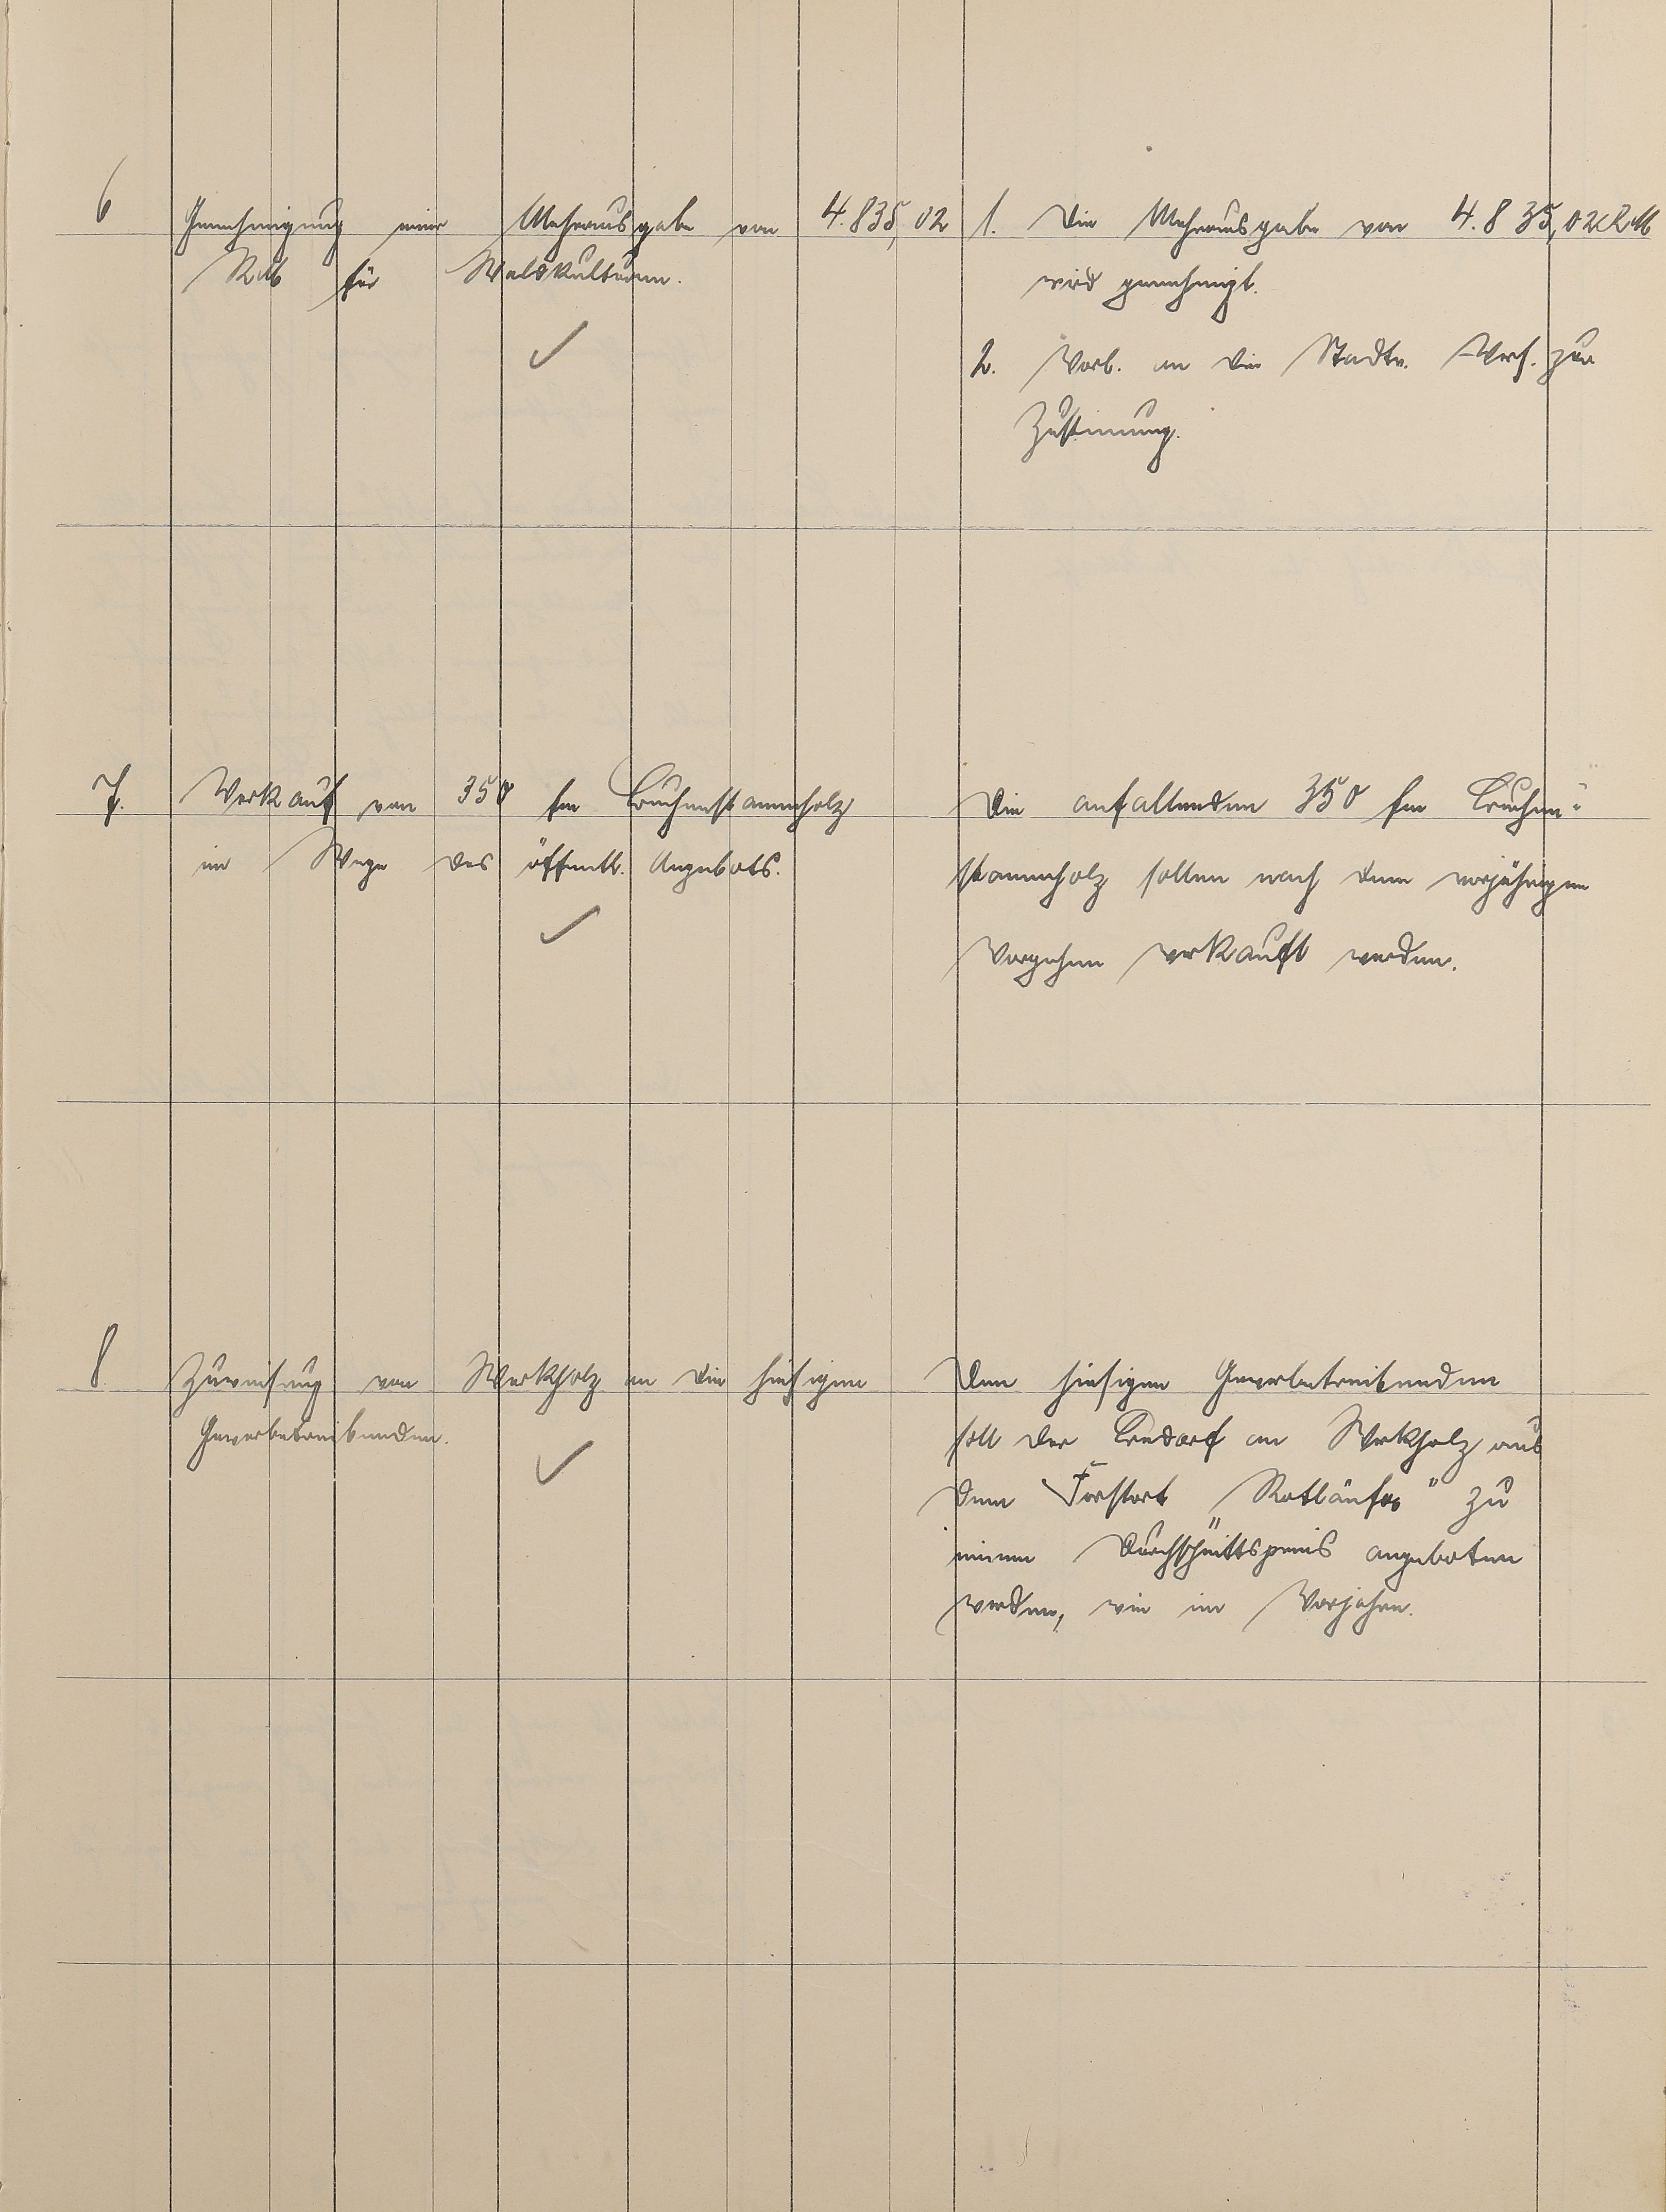 6 Genehmigung einer Mehrausgabe von 4.835,02
RM für Waldkulturen.
1. Die Mehrausgabe von 4.835,02 RM
wird genehmigt.
2. Vorl. an die Stadtv. Vers. zur
Zustimmung.
7. Verkauf von 350 fm Buchenstammholz
im Wege des öffentl. Angebots.
Die anfallenden 350 fm Buchen-
stammholz sollen nach dem vorjährigen
Vorgehen verkauft werden.
8. Zuweisung von Werkholz an die hiesigen
Gewerbetreibenden.
Den hiesigen Gewerbetreibenden
soll der Bedarf an Werkholz aus
dem Forstort „Rotläufer" zu
einem Durchschnittspreis angeboten
werden, wie im Vorjahre.